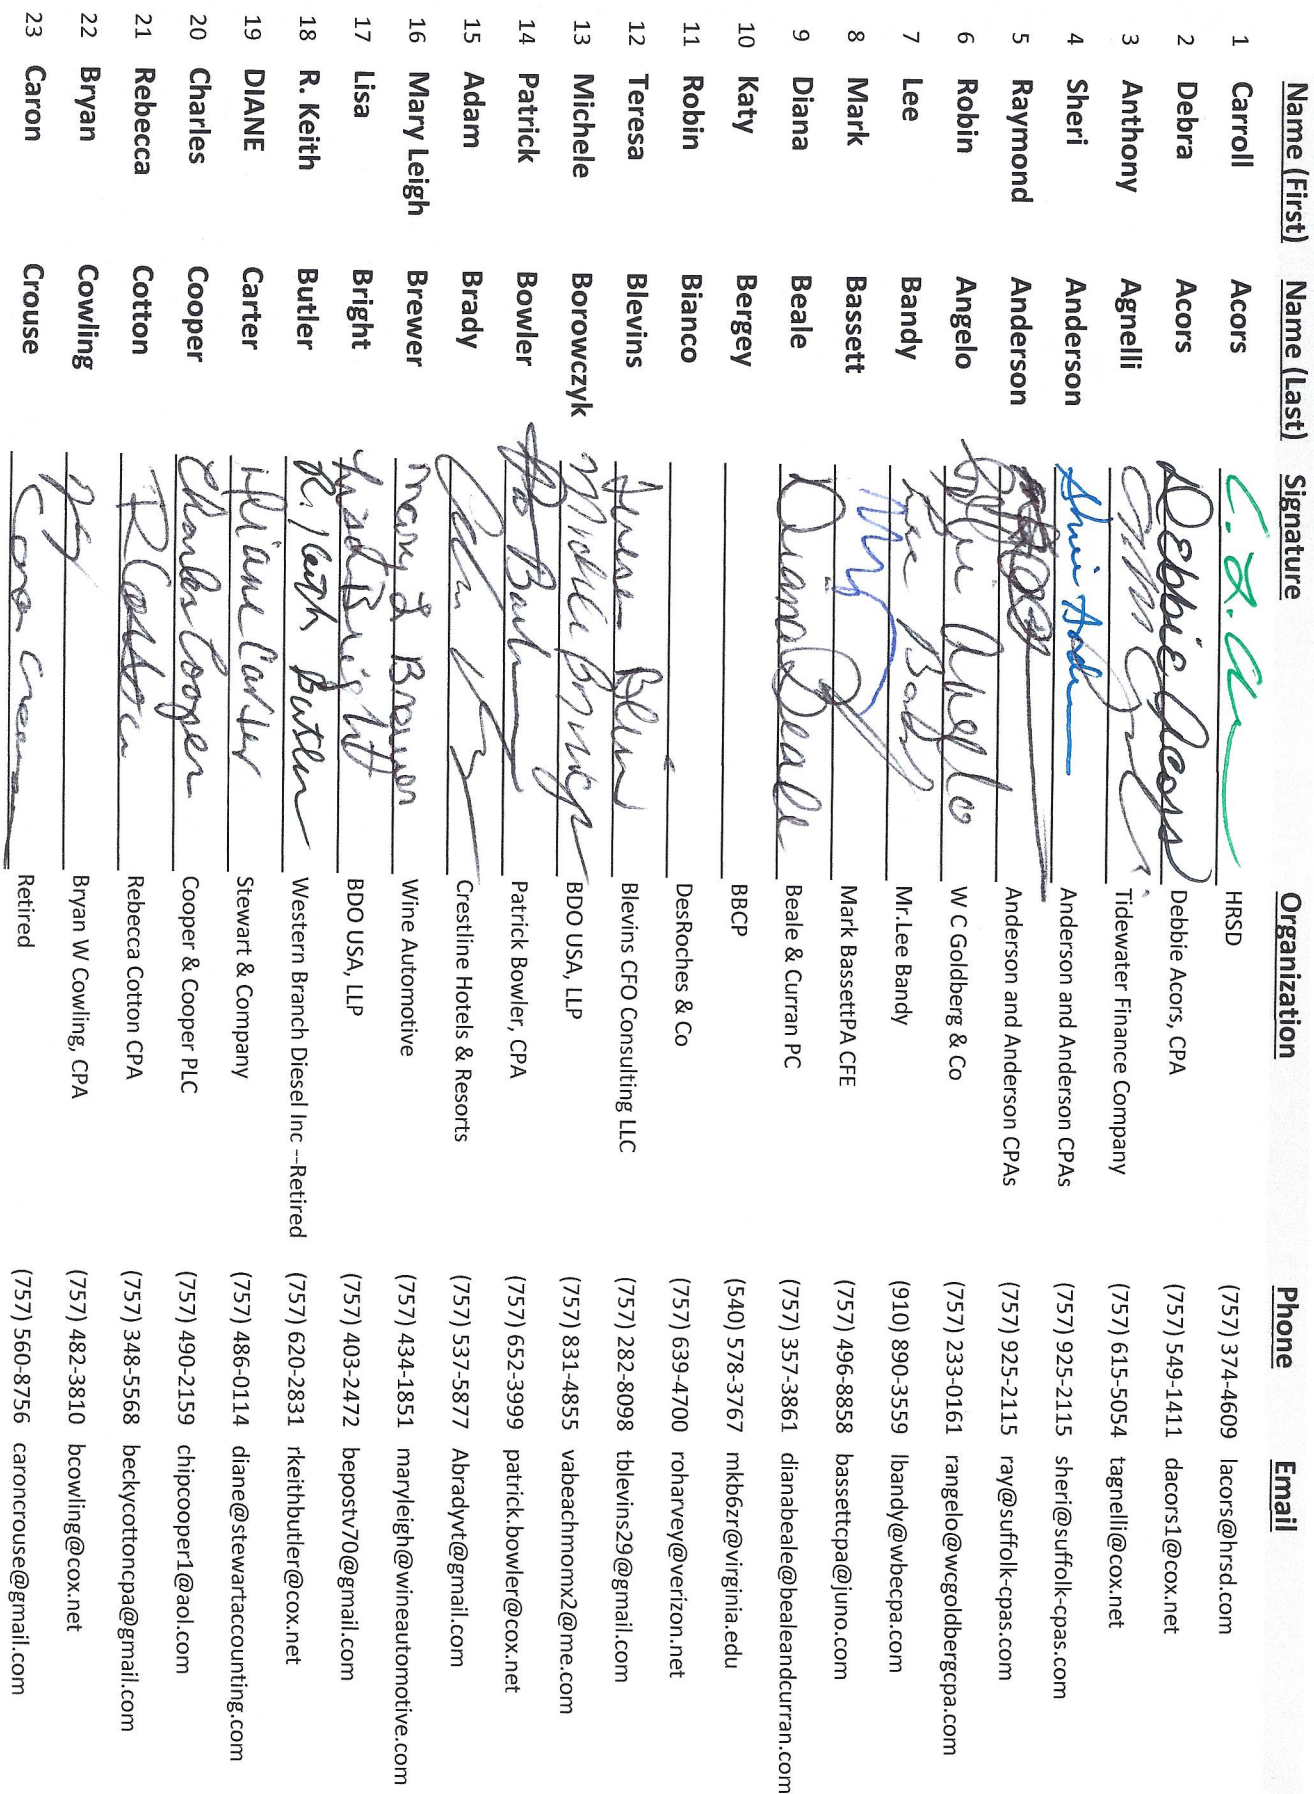 Name (First) Name (Last) Signature Organization Phone Email
1 Carroll Acors HRSD (757) 374-4609 lacors@hrsd.com
2 Debra Acors Debbie Acors Debbie Acors, CPA (757) 549-1411 dacors1@cox.net
3 Anthony Agnelli Tidewater Finance Company (757) 615-5054 tagnelli@cox.net
4 Sheri Anderson Anderson and Anderson CPAs (757) 925-2115 sheri@suffolk-cpas.com
5 Raymond Anderson Anderson and Anderson CPAs (757) 925-2115 ray@suffolk-cpas.com
6 Robin Angelo Angelo W C Goldberg & Co (757) 233-0161 rangelo@wcgoldbergcpa.com
7 Lee Bandy Mr.Lee Bandy (910) 890-3559 lbandy@wbecpa.com
8 Mark Bassett Mark BassettPA CFE (757) 496-8858 bassettcpa@juno.com
9 Diana Beale Diana Beale Beale & Curran PC (757) 357-3861 dianabeale@bealeandcurran.com
10 Katy Bergey BBCP (540) 578-3767 mkb6zr@virginia.edu
11 Robin Bianco DesRoches & Co (757) 639-4700 roharvey@verizon.net
12 Teresa Blevins Blevins CFO Consulting LLC (757) 282-8098 tblevins29@gmail.com
13 Michele Borowczyk BDO USA, LLP (757) 831-4855 vabeachmomx2@me.com
14 Patrick Bowler Patrick Bowler, CPA (757) 652-3999 patrick.bowler@cox.net
15 Adam Brady Crestline Hotels & Resorts (757) 537-5877 Abradyvt@gmail.com
16 Mary Leigh Brewer Mary L Brewer Wine Automotive (757) 434-1851 maryleigh@wineautomotive.com
17 Lisa Bright Lisa Bright BDO USA, LLP (757) 403-2472 bepostv70@gmail.com
18 R. Keith Butler R. Keith Butler Western Branch Diesel Inc --Retired (757) 620-2831 rkeithbutler@cox.net
19 DIANE Carter Diane Carter Stewart & Company (757) 486-0114 diane@stewartaccounting.com
20 Charles Cooper Charles Cooper Cooper & Cooper PLC (757) 490-2159 chipcooper1@aol.com
21 Rebecca Cotton R Cotton Rebecca Cotton CPA (757) 348-5568 beckycottoncpa@gmail.com
22 Bryan Cowling Bryan W Cowling, CPA (757) 482-3810 bcowling@cox.net
23 Caron Crouse Retired (757) 560-8756 caroncrouse@gmail.com